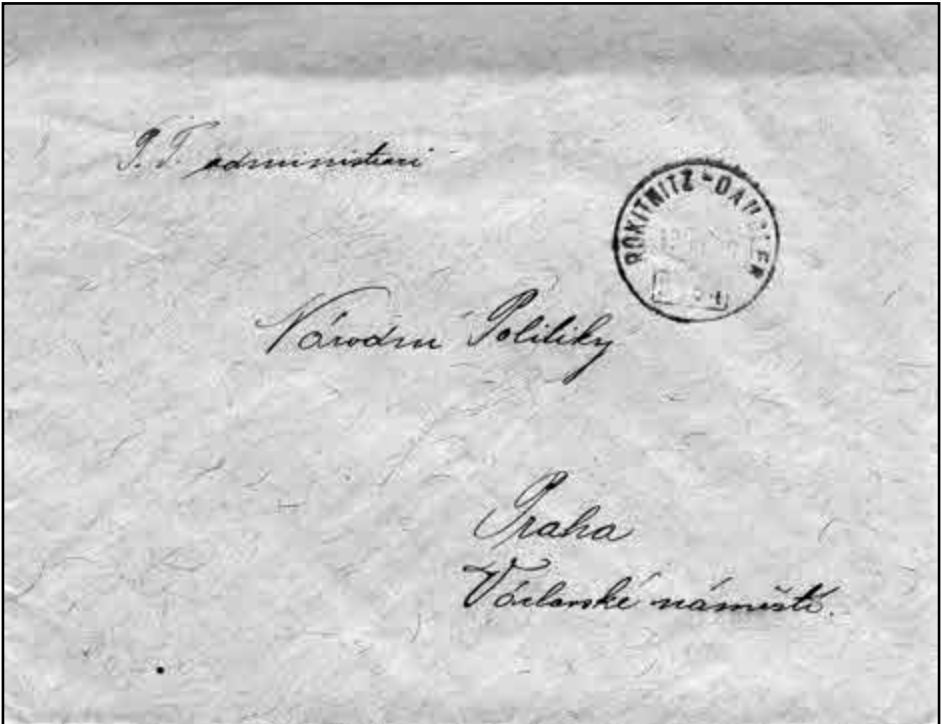 P. T. administraci
ROKITNITZ
Národní Politiky
Praha
Václavské náměstí.